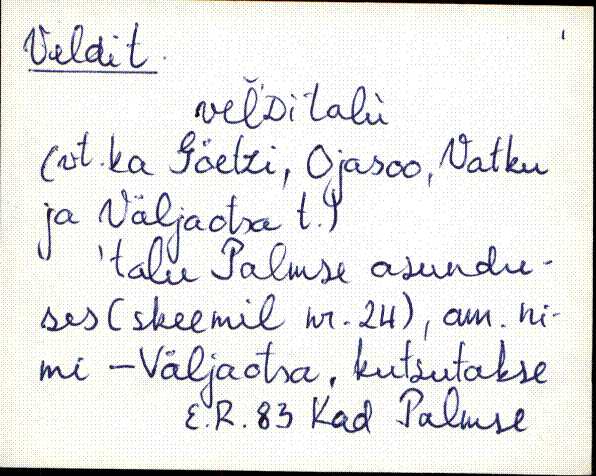 Veldit.
veľDi talu
(vt. ka Göetzi, Ojasoo, Vatku
ja Väljaotsa t.)
'talu Palmse asundu-
ses (skeemil nr. 24), am. ni-
mi – Väljaotsa, kutsutakse
E.R. 83 Kad Palmse